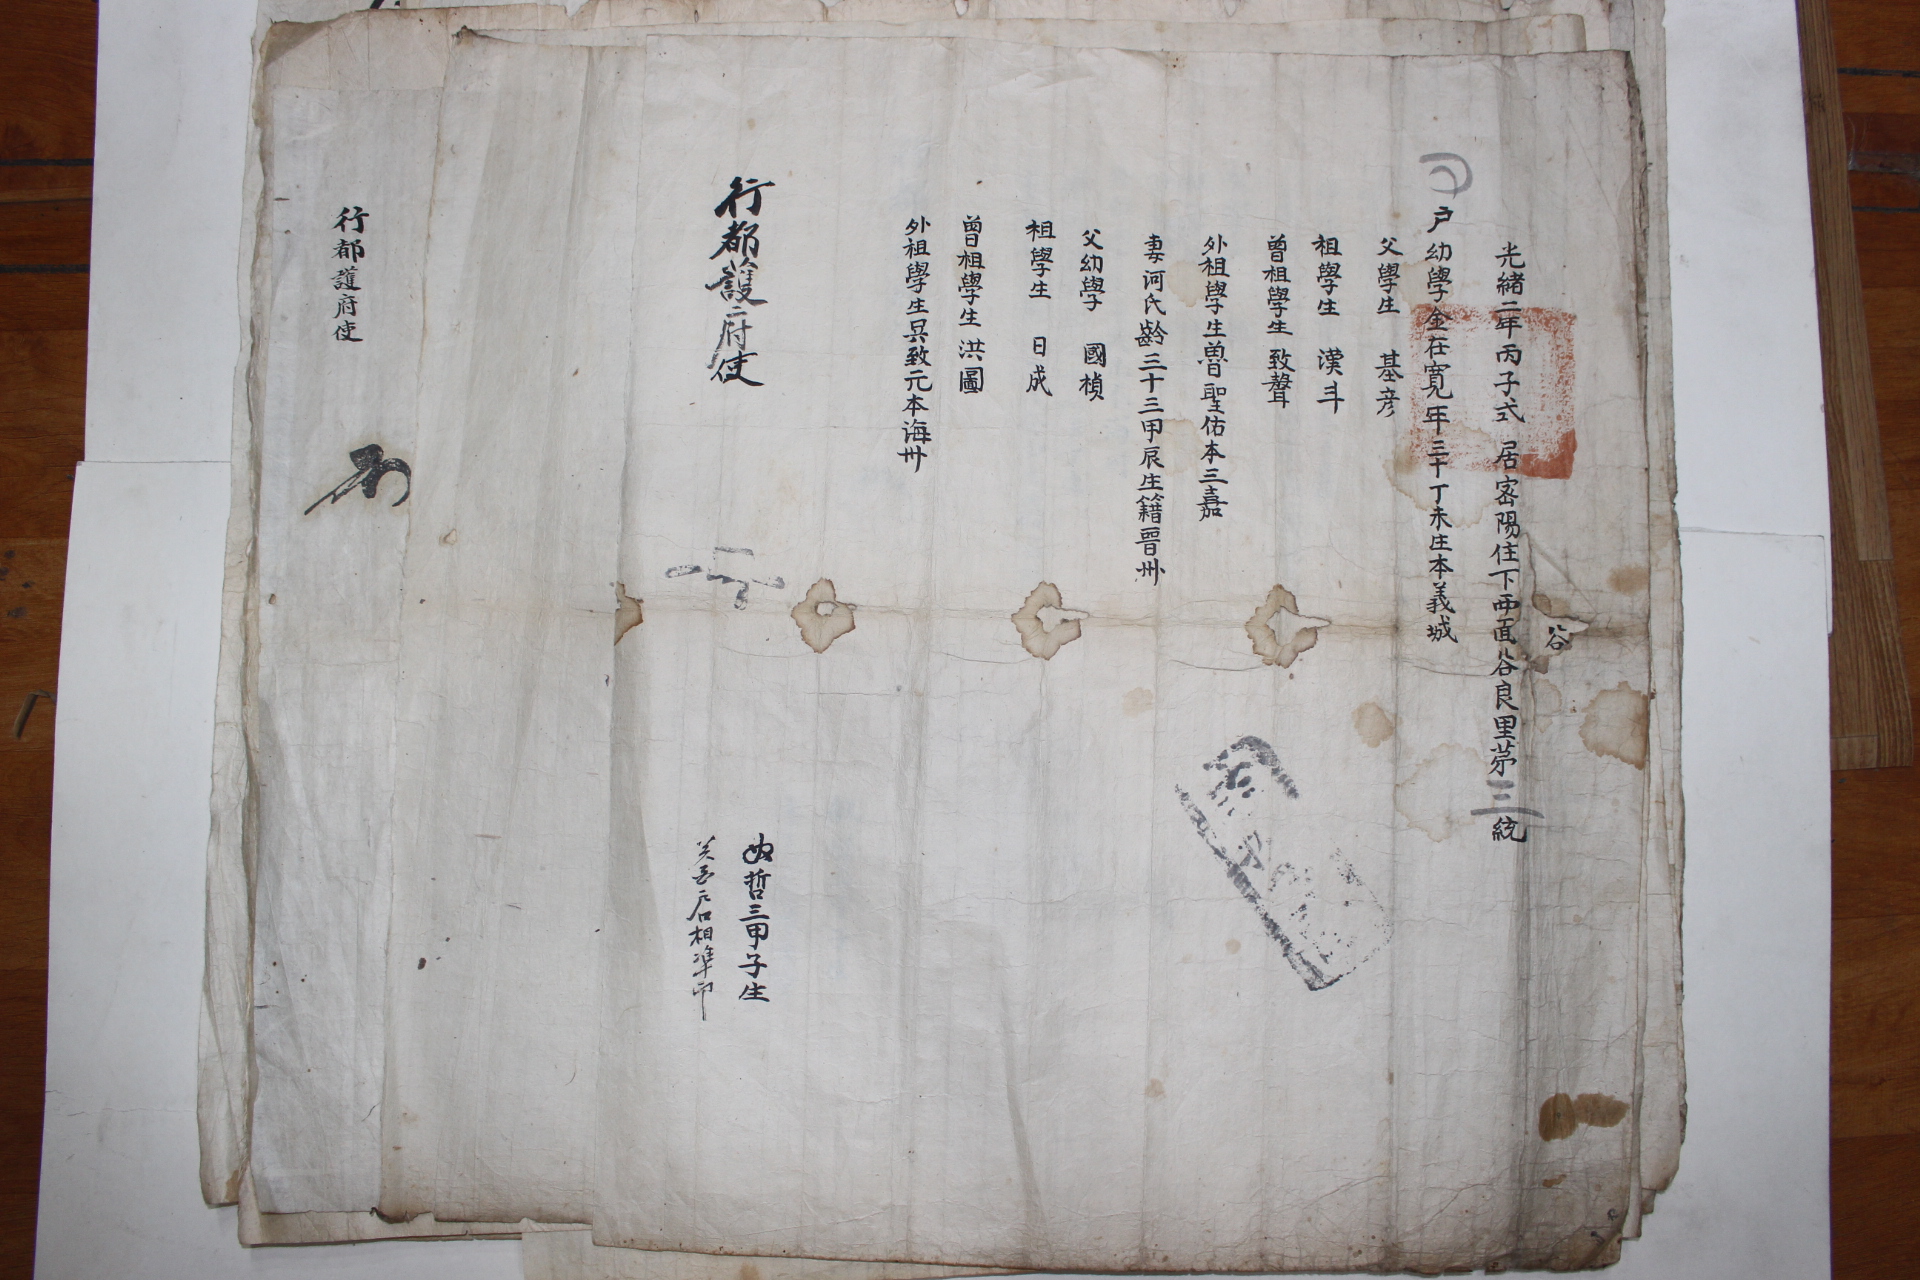 光緒二年丙子式 居密陽住下西面谷良里苐三統
谷
戶幼學金在寬年三十丁未生本義城
父學生 基彦
祖學生 漢斗
曾祖學生 致聲
外祖學生曽聖佑本三嘉
妻河氏齡三十三甲辰生籍晋州
父幼學 國楨
祖學生 日成
曾祖學生 洪圖
外祖學生吳致元本海州
行都護府使
奴哲三甲子生
相準印
行都護府使